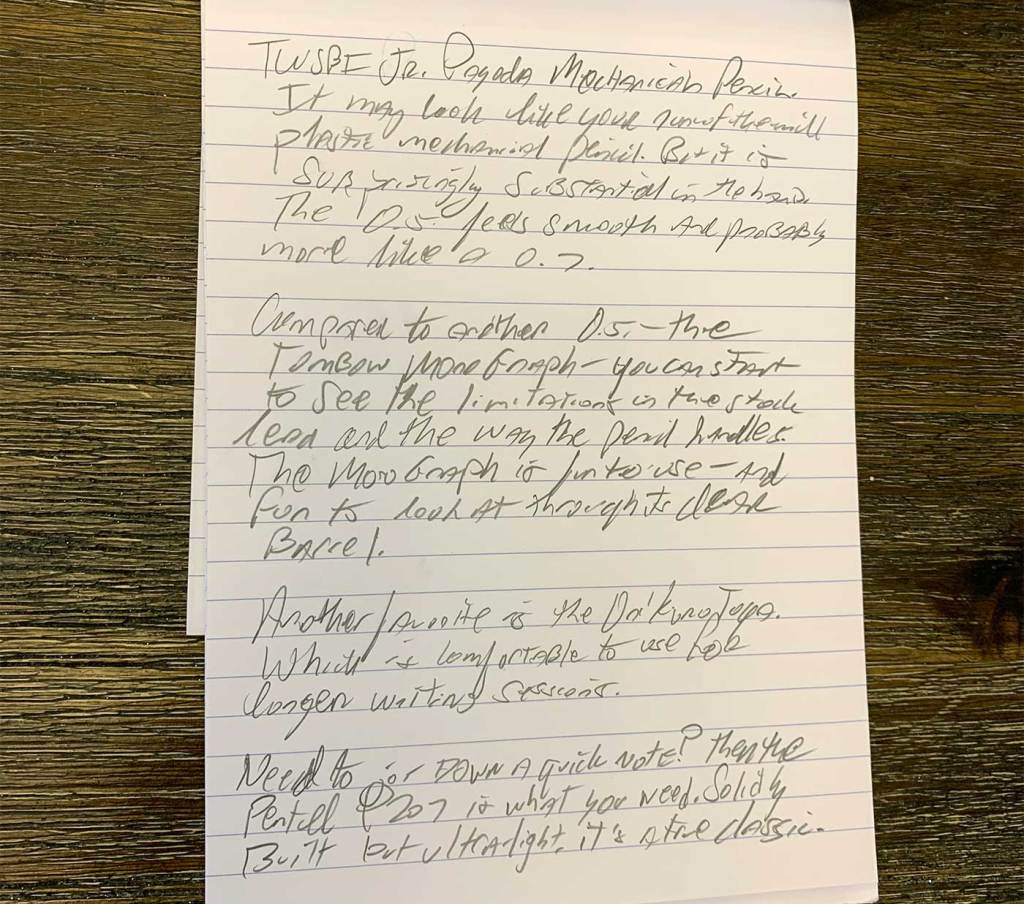 TWSBI Jr. Pagoda Mechanical Pencil.
It may look like your run of the mill
plastic mechanical pencil. But it is
surprisingly substantial in the hand.
The 0.5 feels smooth and probably
more like a 0.7.
Compared to another 0.5. - the
Tombow MonoGraph - you can start
to see the limitations in the stock
lead and the way the pencil handles.
The MonoGraph is fun to use - and
fun to look at through its clear
Barrel.
Another favorite is the
Which is comfortable to use for
longer writing sessions.
Need to jot down a quick note? then the
Pentell P207 is what you need. Solidly
Built but ultralight, it's a true classic.